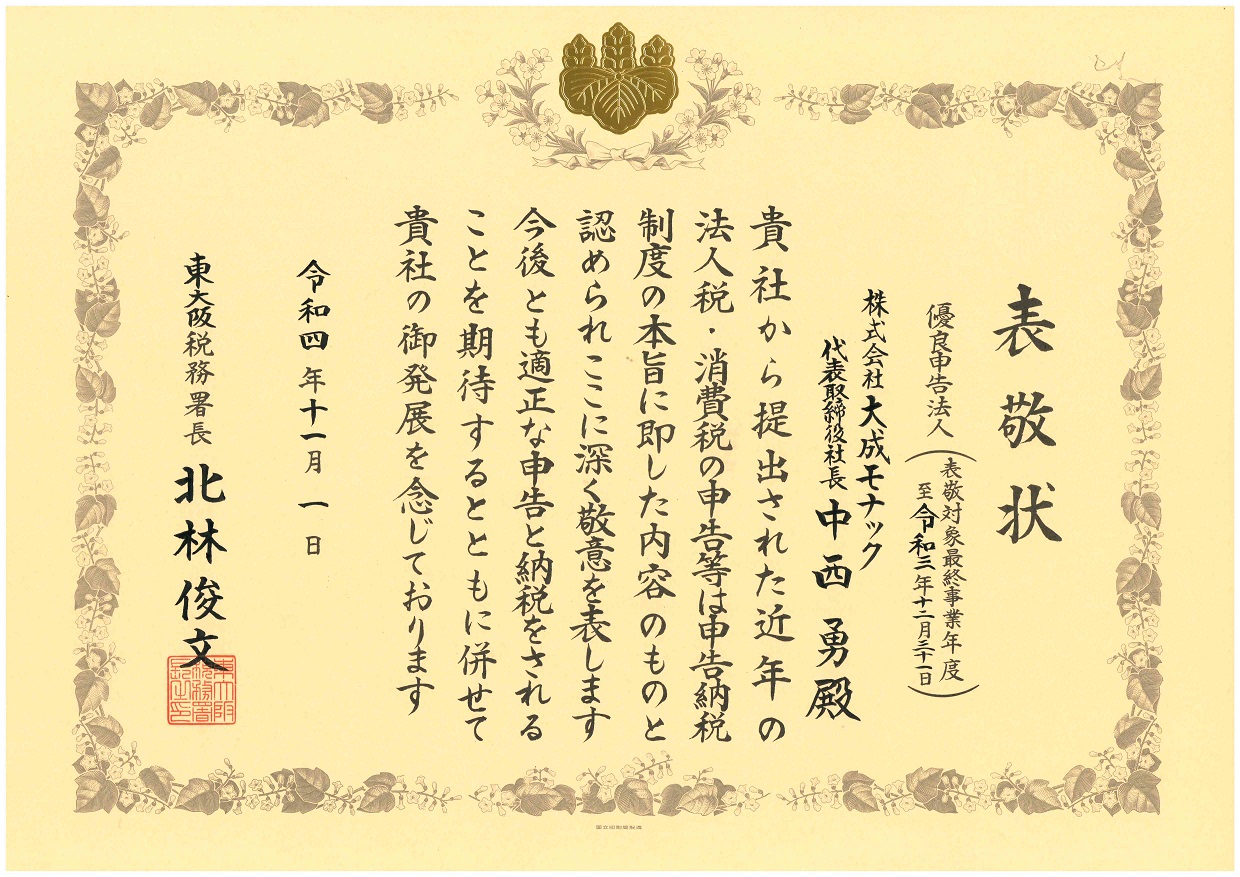 表敬状
優良申告法人
(表敬対象最終事業年度
至令和三年十二月三十一日)
株式会社大成モナック
代表取締役社長 中西勇殿
貴社から提出された近年の
法人税・消費税の申告等は申告納税
制度の本旨に即した内容のものと
認められここに深く敬意を表します
今後とも適正な申告と納税をされる
ことを期待するとともに併せて
貴社の御発展を念じております
令和四年十一月一日
東大阪税務署長 北林俊文
東大阪税務署長之印
国立印刷局製造